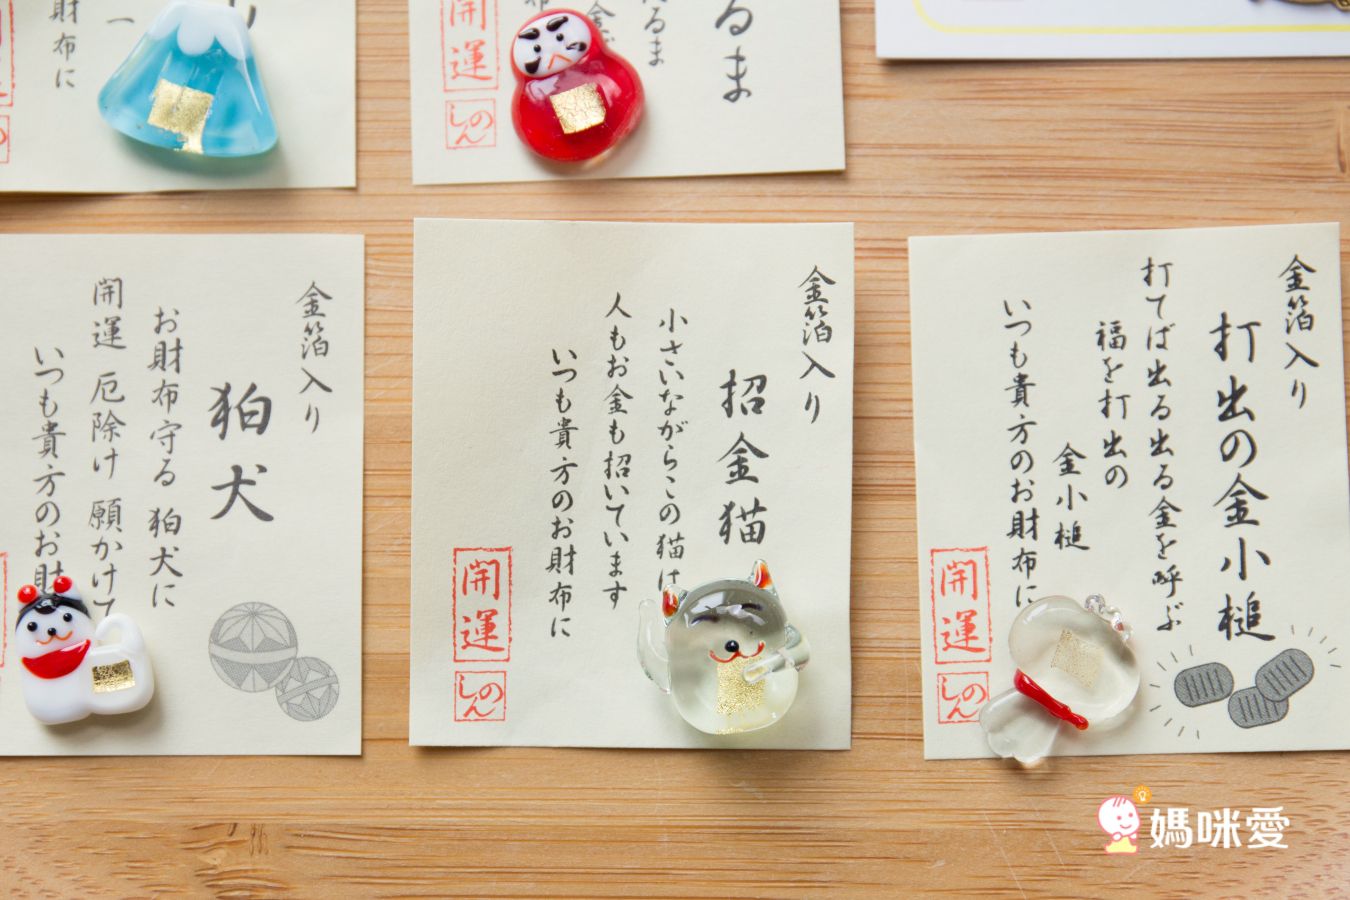 財布に
るま
るま
開運
しのん
金箔入り
狛犬
お財布守る 狛犬に
開運 厄除け 願かけて
いつも貴方のお財
金箔入り
招金猫
小さいながらこの猫は
人もお金も招いています
いつも貴方のお財布に
開運
しのん
金箔入り
打出の金小槌
打てば出る出る金を呼ぶ
福を打出の
金小槌
いつも貴方のお財布に
開運
しのん
媽咪愛